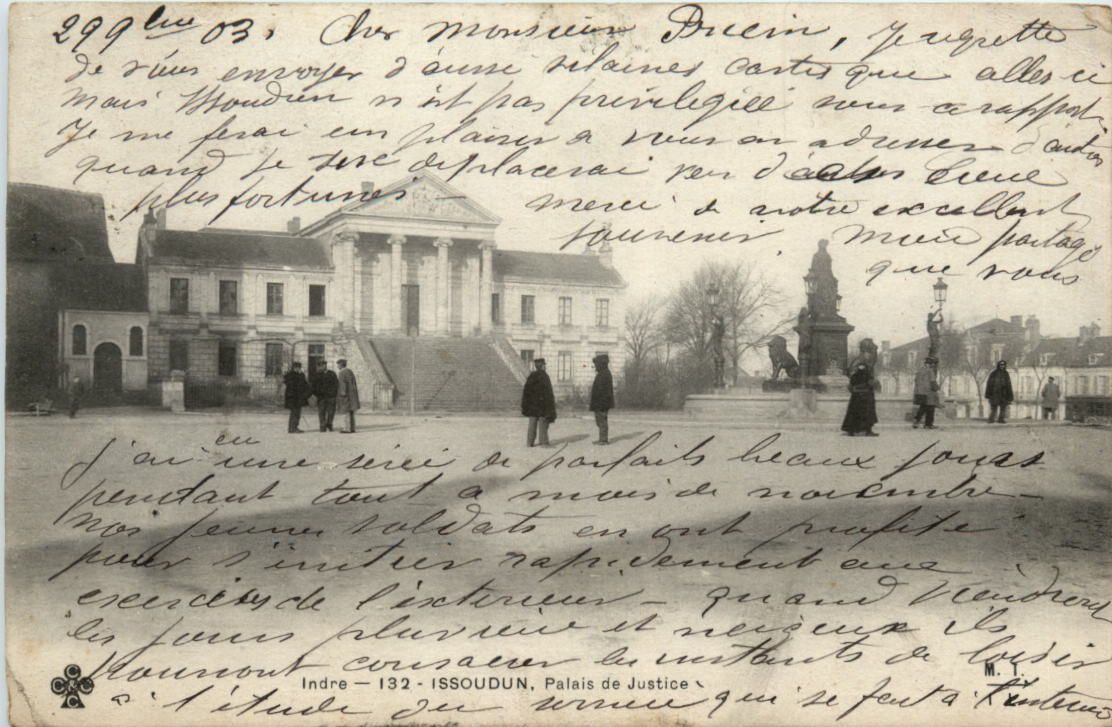 299bre 03. Cher Monsieur Je regrette
de vous envoyer d'aussi vilaines cartes que celles ci
mais Issoudun n'est pas privilégiée sous ce rapport.
Je me ferai un plaisir de vous en adresser d'autres
quand je me déplacerai vers d'autres
plus fortunés - merci de votre excellent
souvenir. partagé
que vous
j'ai eu une série de parfaits beaux jours
pendant tout ce mois de novembre -
nos jeunes soldats en ont profité
pour s'initier rapidement aux
exercices de l'extérieur - quand viendront
les jours pluvieux et neigeux ils
pourront consacrer les instants de loisir
à l'étude du service qui se fait à l'intérieur
Indre - 132 - ISSOUDUN, Palais de Justice
M. T.